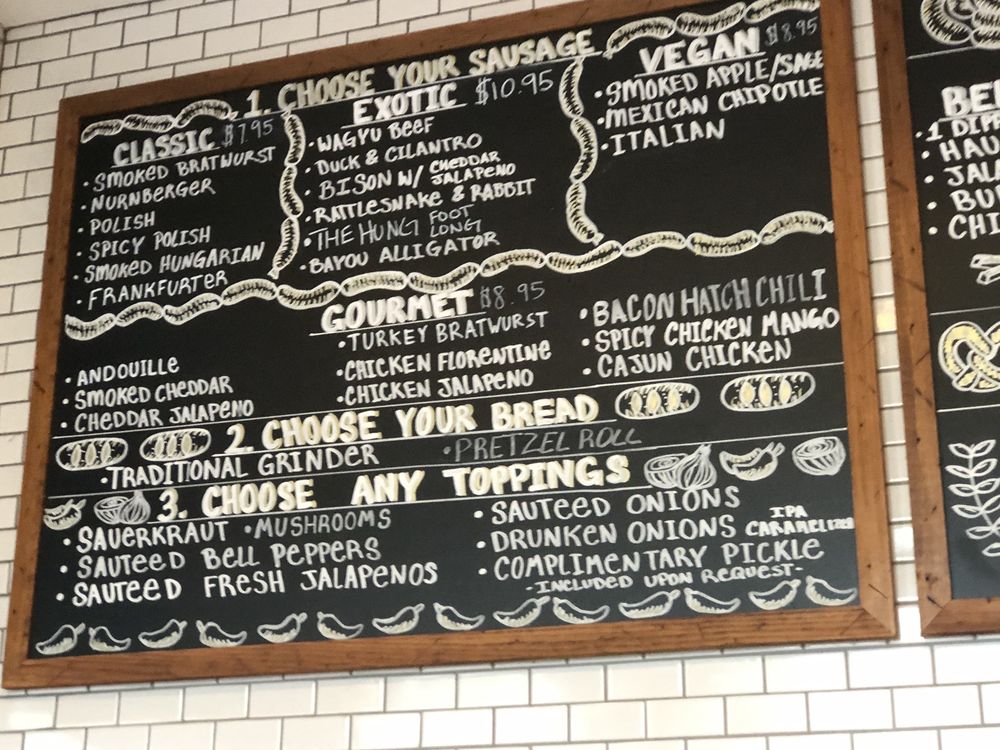 1. CHOOSE YOUR SAUSAGE
CLASSIC $7.95
• SMOKED BRATWURST
• NURNBERGER
• POLISH
• SPICY POLISH
• SMOKED HUNGARIAN
• FRANKFURTER
EXOTIC $10.95
• WAGYU BEEF
• DUCK & CILANTRO
• BISON W/ CHEDDAR JALAPENO
• RATTLESNAKE & RABBIT
• THE HUNG FOOT LONG
• BAYOU ALLIGATOR
VEGAN $8.95
• SMOKED APPLE/SAGE
• MEXICAN CHIPOTLE
• ITALIAN
GOURMET $8.95
• ANDOUILLE
• SMOKED CHEDDAR
• CHEDDAR JALAPENO
• TURKEY BRATWURST
• CHICKEN FLORENTINE
• CHICKEN JALAPENO
• BACON HATCH CHILI
• SPICY CHICKEN MANGO
• CAJUN CHICKEN
2. CHOOSE YOUR BREAD
• TRADITIONAL GRINDER
• PRETZEL ROLL
3. CHOOSE ANY TOPPINGS
• SAUERKRAUT • MUSHROOMS
• SAUTEED BELL PEPPERS
• SAUTEED FRESH JALAPENOS
• SAUTEED ONIONS
• DRUNKEN ONIONS IPA CARAMELIZED
• COMPLIMENTARY PICKLE
- INCLUDED UPON REQUEST -
• 1